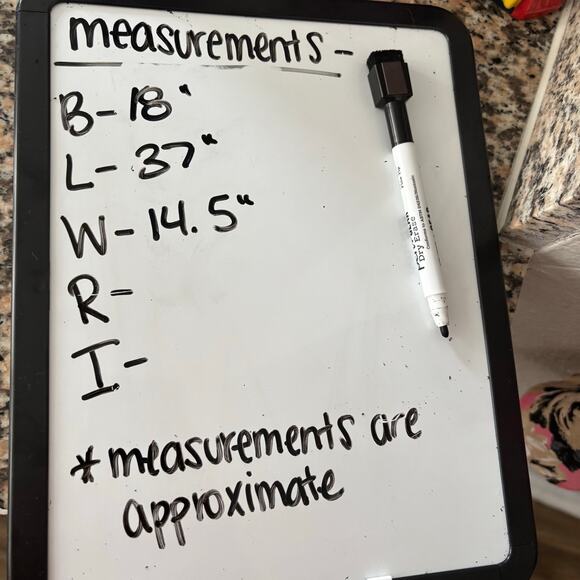 measurements -
B- 18"
L- 37"
W- 14.5"
R-
I-
* measurements are
approximate
Dry Erase